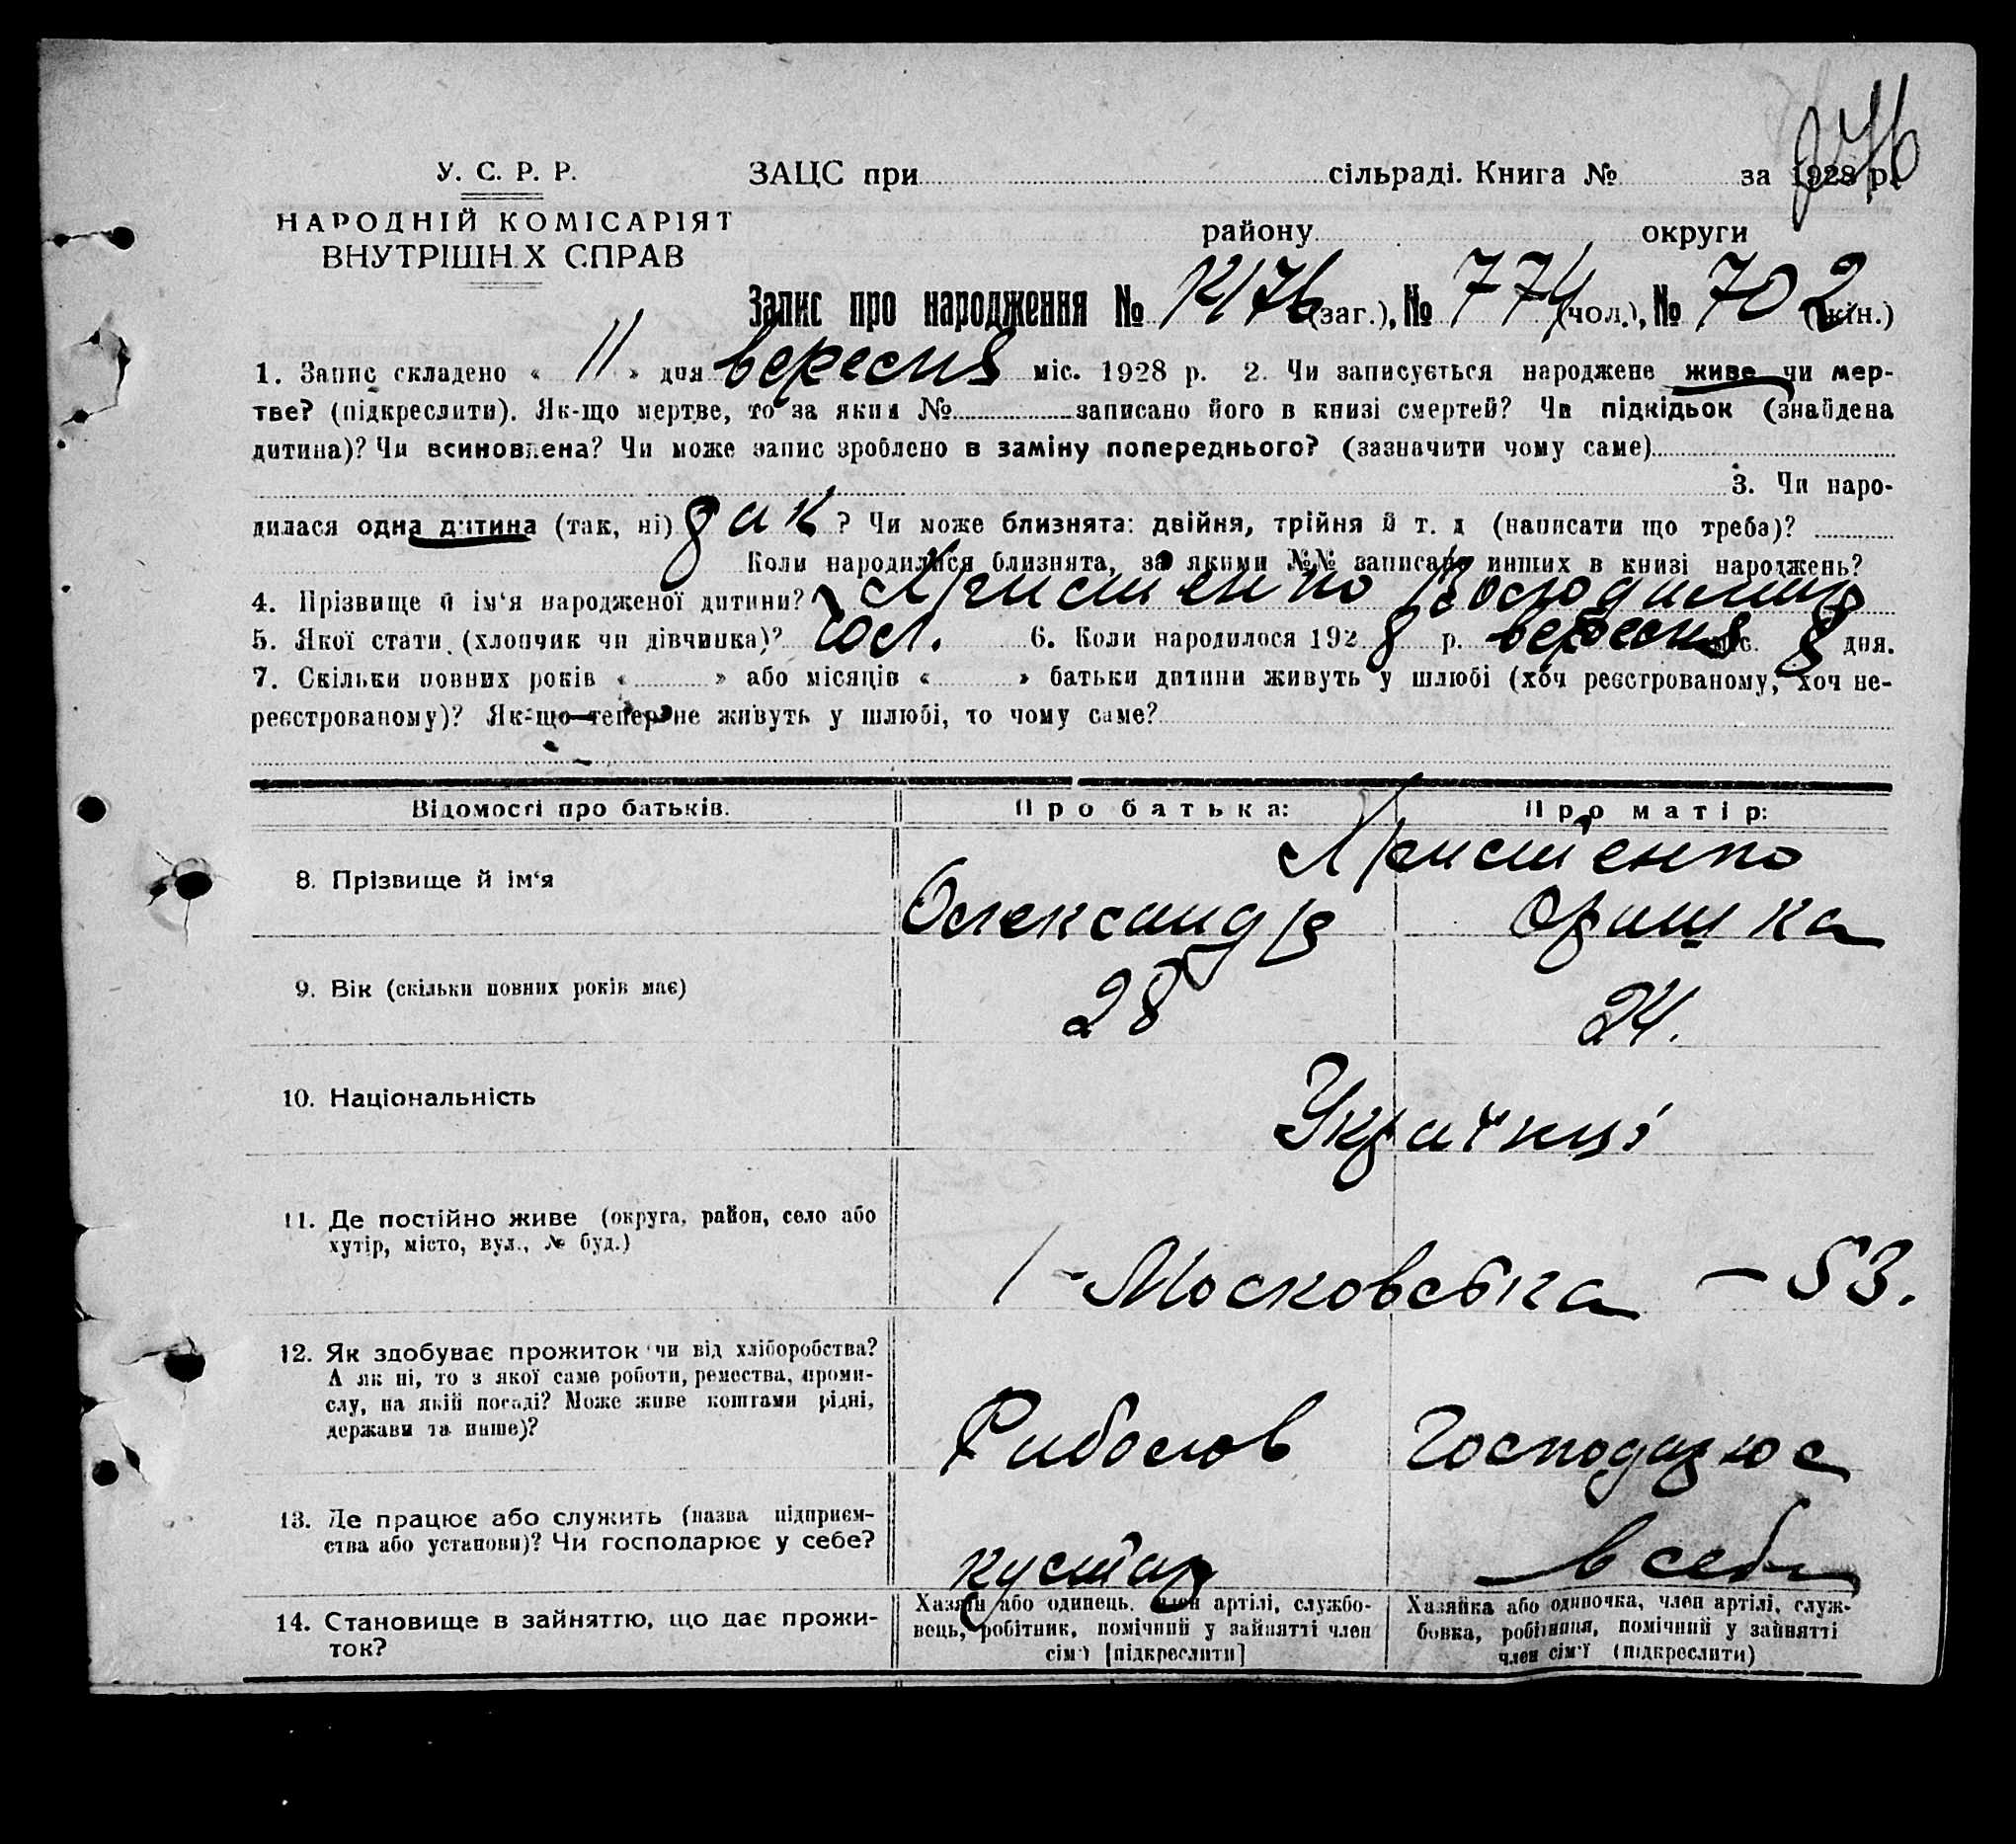 У. С. Р. Р.
НАРОДНІЙ КОМІСАРІЯТ
ВНУТРІШН Х СПРАВ
ЗАЦС при сільраді. Книга № за 1928 р.
району округи
Запис про народження № 1476 (заг.), № 774 (чол.), № 702 (жін.)
1. Запис складено « 11 » дня вересня міс. 1928 р. 2. Чи записується народжене живе чи мер-
тве? (підкреслити). Як-що мертве, то за яким № записано його в книзі смертей? Чи підкідьок (знайдена
дитина)? Чи всиновлена? Чи може запис зроблено в заміну попереднього? (зазначити чому саме)
3. Чи наро-
дилася одна дитина (так, ні) так ? Чи може близнята: двійня, трійня й т. д (написати що треба)?
Коли народилися близнята, за якими №№ записано инших в книзі народжень?
4. Прізвище й ім‘я народженої дитини? Володимир
5. Якої стати (хлопчик чи дівчинка)? чол. 6. Коли народилося 1928 р. вересня міс. 8 дня.
7. Скільки повних років « » або місяців « » батьки дитини живуть у шлюбі (хоч реєстрованому, хоч не-
реєстрованому)? Як-що тепер не живуть у шлюбі, то чому саме?
Відомості про батьків. Про батька: Про матір:
8. Прізвище й ім‘я
Олександр Оришка
9. Вік (скільки повних років має) 28 24.
10. Національність Українці
11. Де постійно живе (округа, район, село або
хутір, місто, вул., № буд.)
1-Московська – 53.
12. Як здобуває прожиток чи від хліборобства?
А як ні, то з якої саме роботи, ремества, проми-
слу, на якій посаді? Може живе коштами рідні,
держави та инше)?
Риболов Господарює
13. Де працює або служить (назва підприєм-
ства або установи)? Чи господарює у себе?
кустар в себе
14. Становище в зайняттю, що дає прожи-
ток?
Хазяїн або одинець, член артілі, службо-
вець, робітник, помічний у зайнятті член
сім‘ї [підкреслити]
Хазяйка або одиночка, член артілі, служ-
бовка, робітниця, помічний у зайнятті
член сім‘ї (підкреслити)